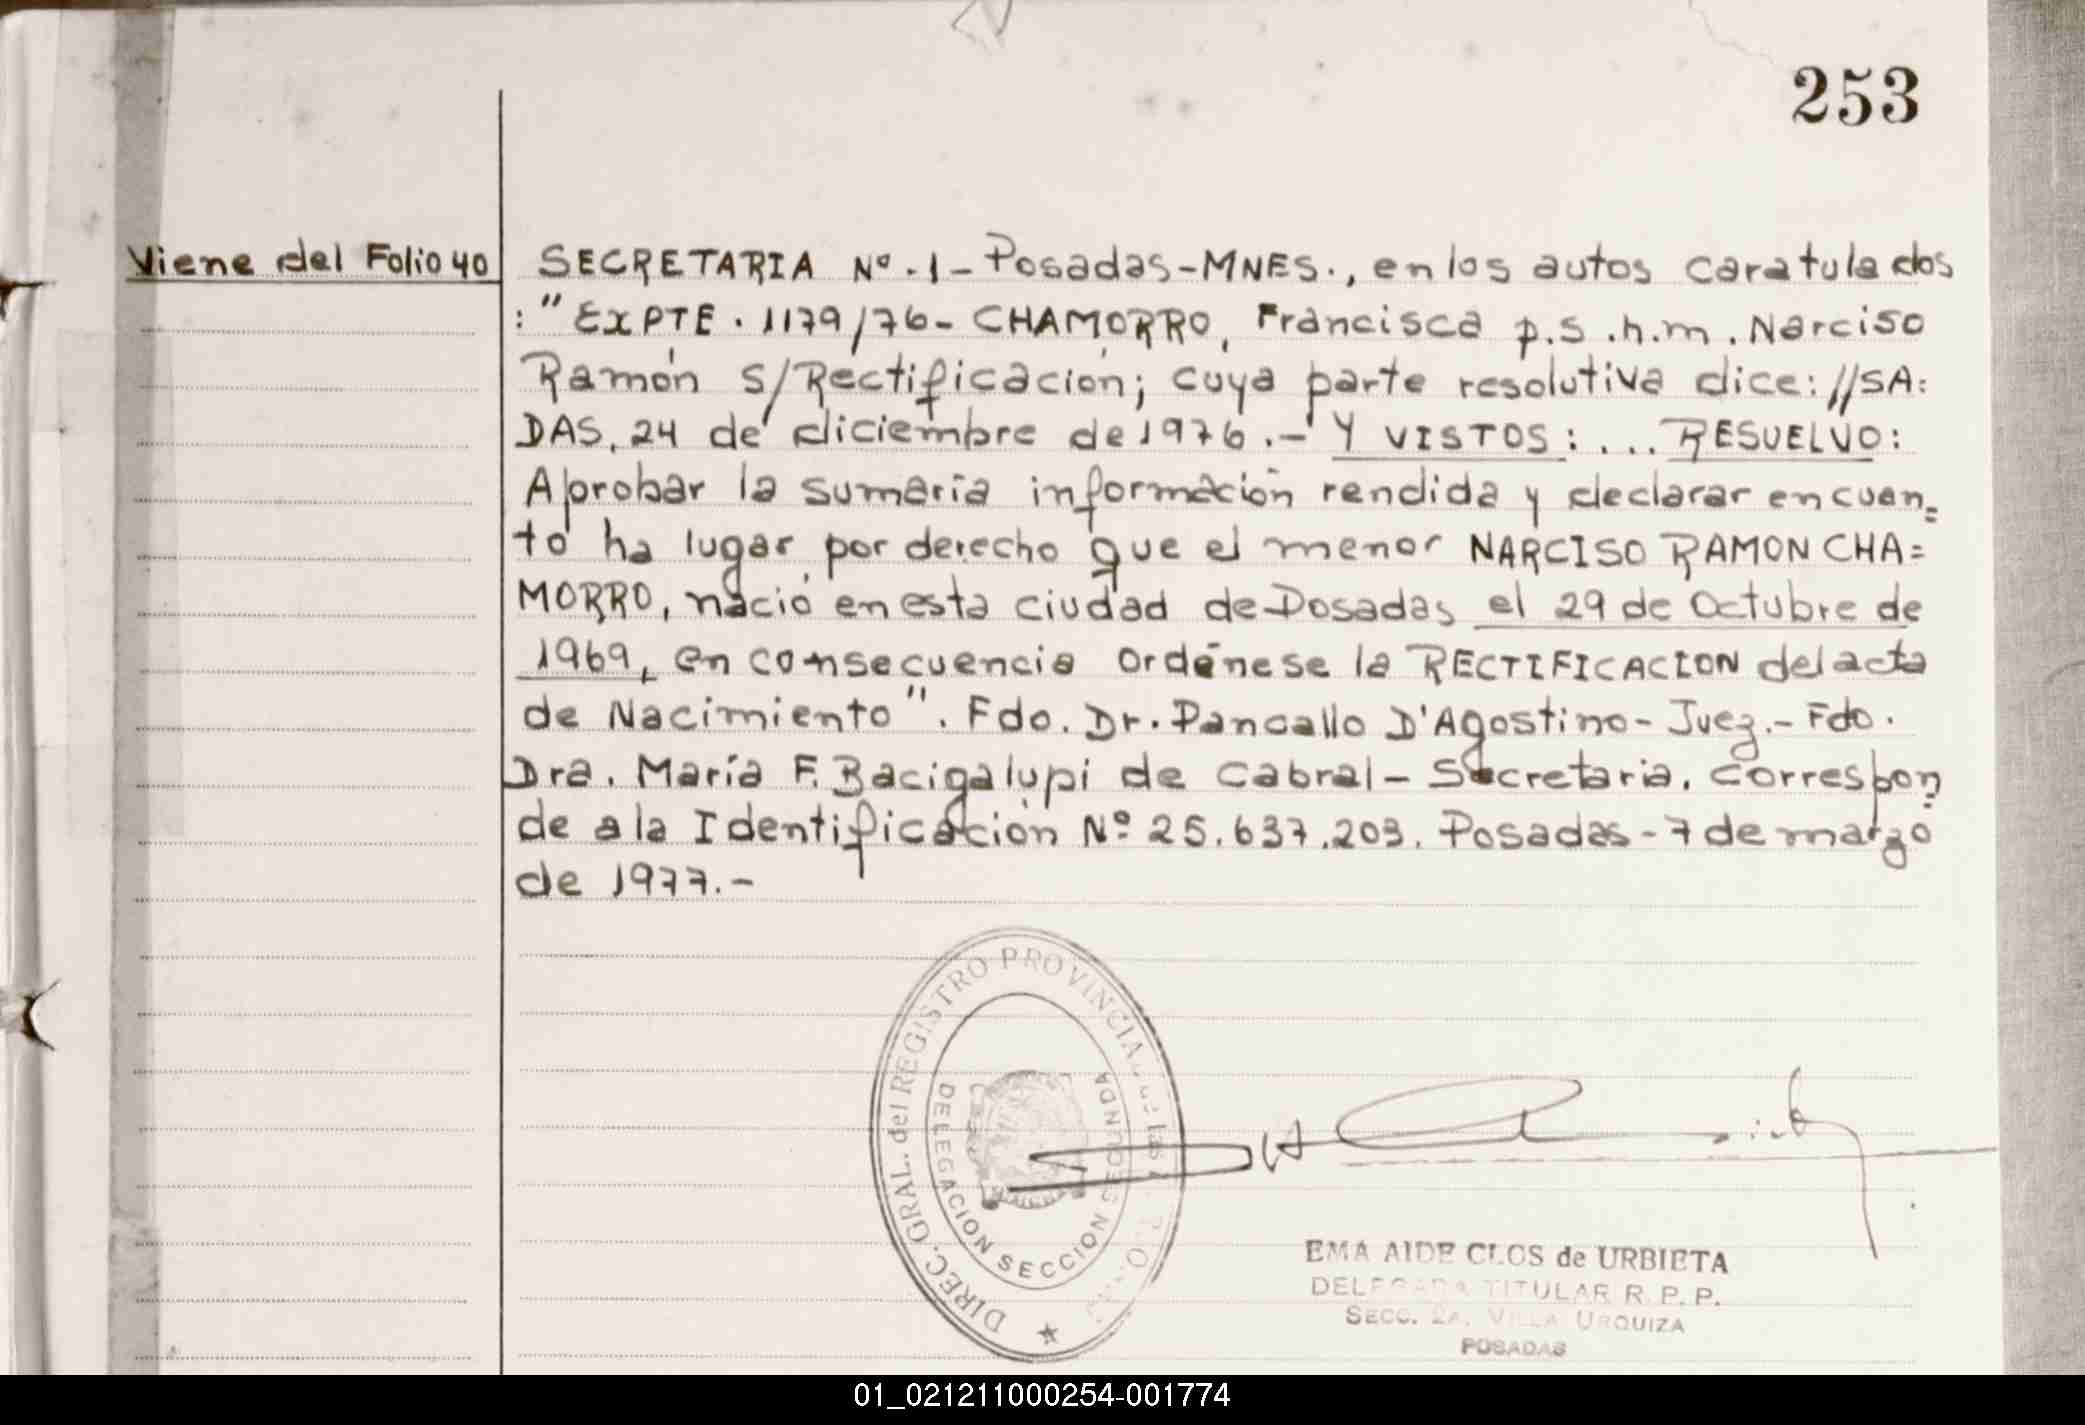 253
Viene del Folio 40
SECRETARIA Nº.1- Posadas-MNES., en los autos caratulados
:"EXPTE. 1179/76- CHAMORRO, Francisca p.s.h.m. Narciso
Ramón s/Rectificación; cuya parte resolutiva dice: //SA=
DAS, 24 de diciembre de 1976.- Y VISTOS:... RESUELVO:
Aprobar la sumaria información rendida y declarar en cuan=
to ha lugar por derecho que el menor NARCISO RAMON CHA=
MORRO, nació en esta ciudad de Posadas el 29 de Octubre de
1969, en consecuencia ordénese la RECTIFICACION del acta
de Nacimiento". Fdo. Dr. D'Agostino- Juez.- Fdo.
Dra. María F. Bacigalupi de Cabral- Secretaria. Correspon=
de a la Identificación Nº 25.637.203. Posadas- 7 de marzo
de 1977.-
DIREC. GRAL. del REGISTRO PROVINCIAL de las
DELEGACION SECCION SEGUNDA
EMA AIDE CLOS de URBIETA
DELEGADA TITULAR R. P. P.
SECC. 2a. VILLA URQUIZA
POSADAS
01_021211000254-001774